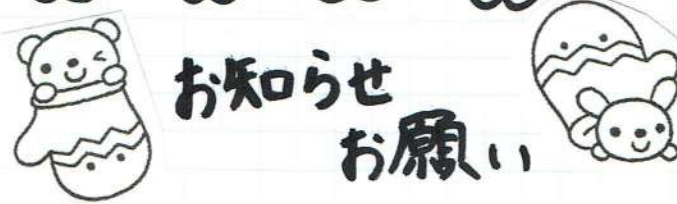 お知らせ
お願い